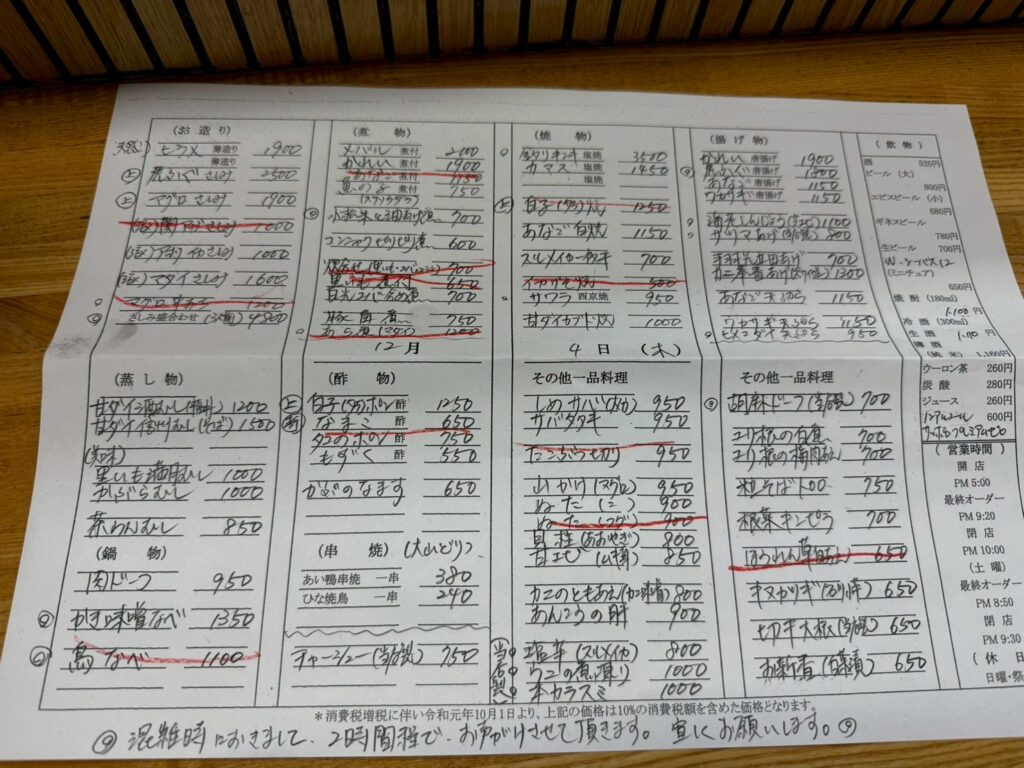 (お造り)
天然 ヒラメ 薄造り 1900
薄造り
上 虎ふぐさしみ 2500
上 マグロさしみ 1900
さしみ 1000
さしみ
マダイさしみ 1600
マグロ
さしみ盛合わせ(3人前) 4800
(煮 物)
メバル 煮付 2100
かれい 煮付 1900
あなご 煮付 1150
煮付 750
小松菜と油あげ煮 700
コンニャクピリピリ煮 600
700
里いも煮付 650
700
豚角煮 750
あら煮(マダイ) 1200
(焼 物)
塩焼 3500
カマス 塩焼 1450
塩焼
上 白子(タラ)焼 1250
あなご白焼 1150
スルメイカ一夜干 700
500
サワラ 西京焼 950
甘ダイカブト焼 1000
(揚げ物)
かれい 唐揚げ 1900
虎ふぐ 唐揚げ 1800
あなご 唐揚げ 1150
ワカサギ 唐揚げ 1150
1100
サツマあげ(当店製)
1300
あなご天ぷら 1150
ワカサギ天ぷら 1150
ヒメコダイ天ぷら 950
(飲 物)
酒 520円
ビール (大)
800円
エビスビール (小)
680円
ギネスビール
780円
生ビール 700円
(ミニチュア)
650円
焼 酎 (180ml)
1,100円
冷 酒 (300ml)
生 酒
樽 酒
(純 米) 1,160円
ウーロン茶 260円
炭 酸 280円
ジュース 260円
ノンアルコール 600円
12月 4日 (木)
(蒸し物)
甘ダイ酒むし 1200
甘ダイ信州むし(そば) 1500
里いも満月むし 1000
かぶらむし 1000
茶わんむし 850
(鍋 物)
肉ドーフ 950
かき味噌なべ 1350
鳥なべ 1100
(酢 物)
上 白子(タラ)ポン 酢 1250
なまこ 酢 650
タコのポン 酢 750
もずく 酢 550
かぶのなます 650
(串 焼) (大山どり)
あい鴨串焼 一串 380
ひな焼鳥 一串 240
チャーシュー(当店製) 750
その他一品料理
しめサバ 950
サバタタキ
たこぶつ切り 950
山かけ(マグロ) 950
ぬた 900
ぬた(マグロ) 900
貝柱(あおやぎ) 800
甘エビ 850
カニのともあえ(カニ味噌) 800
あんこうの肝 900
当店製 塩辛(スルメイカ) 800
ウニの煮凍り 1000
本カラスミ 1000
その他一品料理
胡麻ドーフ(当店製) 700
ユリ根の白煮 700
ユリ根の梅肉和え 700
粒そばトロロ 750
根菜キンピラ 700
ほうれん草 650
キヌカツギ 650
切干大根(当店製) 650
お新香(白菜漬) 650
(営業時間)
開 店
PM 5:00
最終オーダー
PM 9:20
閉 店
PM 10:00
(土 曜)
最終オーダー
PM 8:50
閉 店
PM 9:30
(休 日
日曜・祭
*消費税増税に伴い令和元年10月1日より、上記の価格は10%の消費税額を含めた価格となります。
混雑時におきまして、2時間程で、お声がけさせて頂きます。宜しくお願いします。